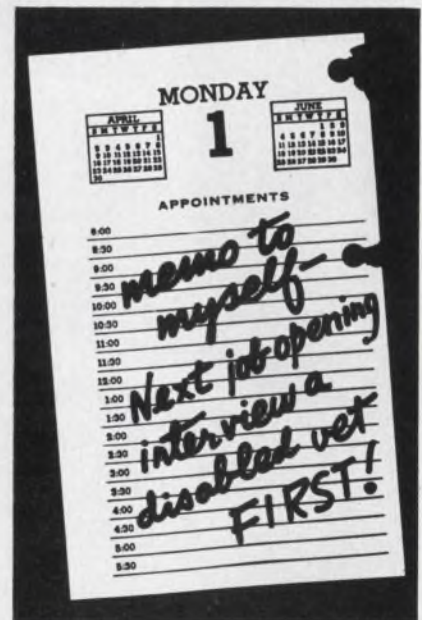 MONDAY
APRIL
S M T W T F S
1
JUNE
S M T W T F S
APPOINTMENTS
8:00
8:30
9:00
9:30
10:00
10:30
11:00
11:30
12:00
1:00
1:30
2:00
2:30
3:00
3:30
4:00
4:30
5:00
5:30
memo to
myself—
Next job opening
interview a
disabled vet
FIRST!